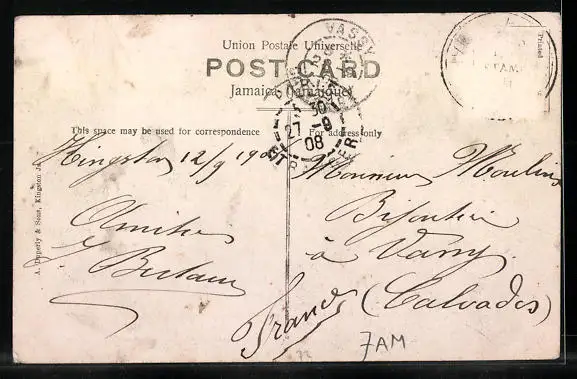 Union Postale Universelle
POST CARD
Jamaica (Jamaique)
This space may be used for correspondence
For address only
VASSY
27 -9
08
Kingston 12/9 190
Amitiés
Monsieur Moulin
Bijoutier
à Vassy
(Calvados)
France
7AM
A. Duperly & Sons, Kingston Ja.